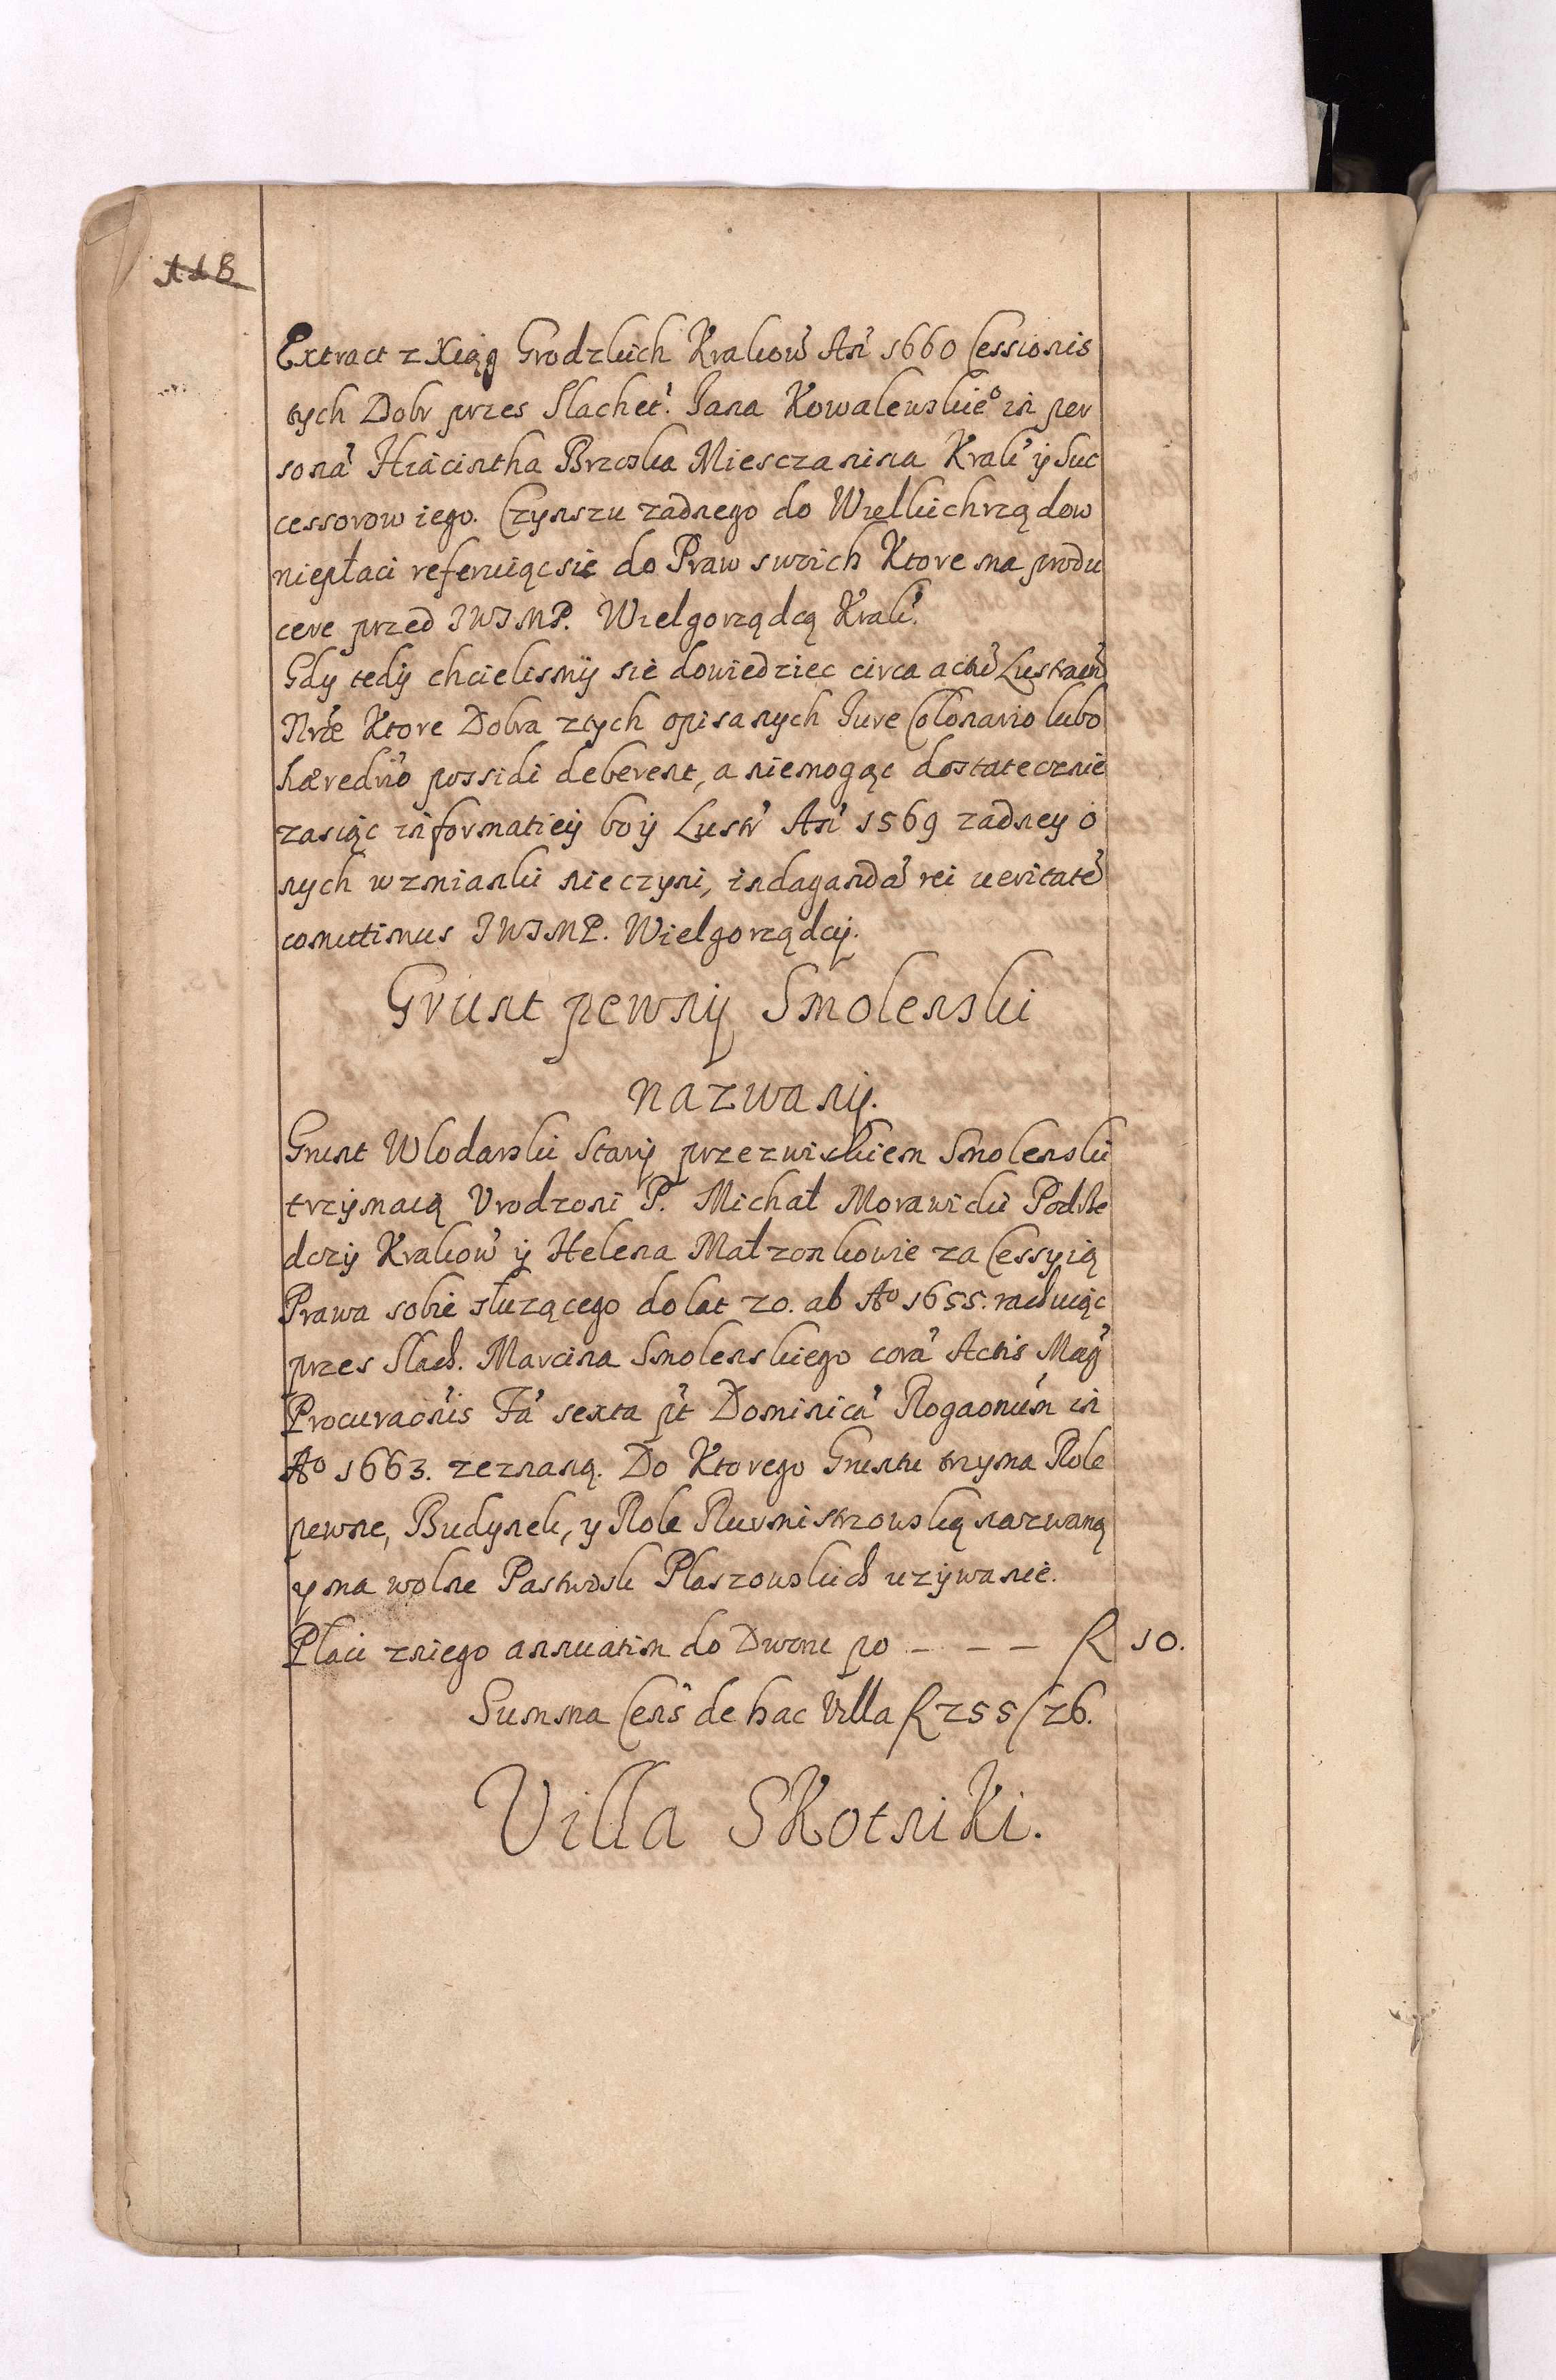 Extract z Xiąg Grodzkich Krakow̃ An̄ 1660 Cessionis
tych Dobr przes Slachet̃. Jana Kowalewskie° in per
sonã Hiacintha Brzoska Miesczanina Krak̃ ÿ Suc
cessorow iego. Czynszu zadnego do Wielkichrządow
niepłaci referuiąc sie do Praw swoich Ktore ma produ
cere przed JWJMP. Wielgorządcą Krak̃.
Gdy tedÿ chcielismÿ sie dowiedziec circa actũ Lustraõn
Nr̃æ Ktore Dobra ztych opisanych Jure Colonario lubo
hæredr̃io possidi deberent, a niemogąc dostatecznie
zasiąc informatiey bo ÿ Lustr̃ An̄ 1569 zadney o
nych wzmianki nieczyni, indagandã rei ueritatẽ
com̃ittimus JWJMP. Wielgorządcÿ.
Grunt pewnÿ Smolenski
nazwanÿ.
Grunt Wlodarski Starÿ przezwiskiem Smolenski
trzÿmaią Vrodzoni P. Michał Morawicki Podsę
dczÿ Krakow̃ ÿ Helena Małzonkowie za Cessyią
Prawa sobie słuzącego do lat 20. ab A° 1655. rachuiąc
przes Slach. Marcina Smolenskiego corã Actis Mag̃
Procuraõnis Fã sexta p̃t Dominicã Rogaõnum in
A° 1663. zeznaną. Do Ktorego Gruntu trzyma Role
pewne, Budynek, y Role Rurmistrzowską nazwaną
y ma wolne Pastwisk Plaszowskich uzÿwanie.
Płaci zniego annuatim do Dworu po – – – f 10.
Summa Cens̃ de hac Villa f 255/26.
Villa SKotniKi.